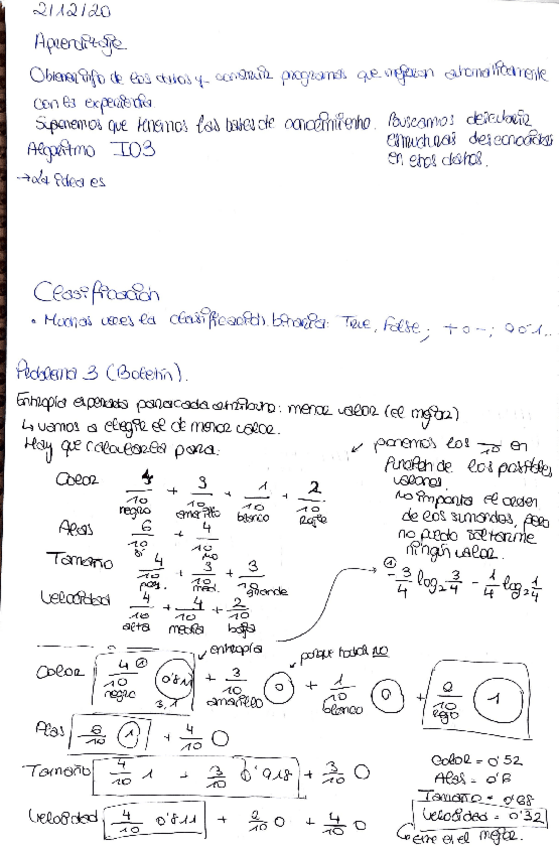 2/12/20
Aprendizaje
Obtener info de los datos y construir programas que mejoran automáticamente
con la experiencia.
Suponemos que tenemos las bases de conocimiento. Buscamos descubrir
estructuras desconocidas
en esos datos.
Algoritmo ID3
→ La idea es
Clasificación
• Muchas veces la clasificación binaria: True, False; + o -; 0 o 1...
Problema 3 (Boletín).
Entropía esperada para cada atributo: menor valor (el mejor)
↳ vamos a elegir el de menor valor.
Hay que calcularla para:
↙ ponemos los —/10 en
función de los posibles
valores.
No importa el orden
de los sumandos, pero
no puedo saltarme
ningún valor.
Color 4/10 negro + 3/10 amarillo + 1/10 blanco + 2/10 rojo
Alas 6/10 sí + 4/10 no
Tamaño 4/10 peq. + 3/10 med. + 3/10 grande
Velocidad 4/10 alta + 4/10 media + 2/10 baja
① -3/4 log₂ 3/4 - 1/4 log₂ 1/4
entropía
porque todos NO
Color 4/10 negro ① 0'811 3,1 + 3/10 amarillo 0 + 1/10 blanco 0 + 2/10 rojo 1
Alas 6/10 1 + 4/10 0
Tamaño 4/10 1 + 3/10 0'918 + 3/10 0
Velocidad 4/10 0'811 + 2/10 0 + 4/10 0
Color = 0'52
Alas = 0'6
Tamaño = 0'68
Velocidad = 0'32
↳ este es el mejor.